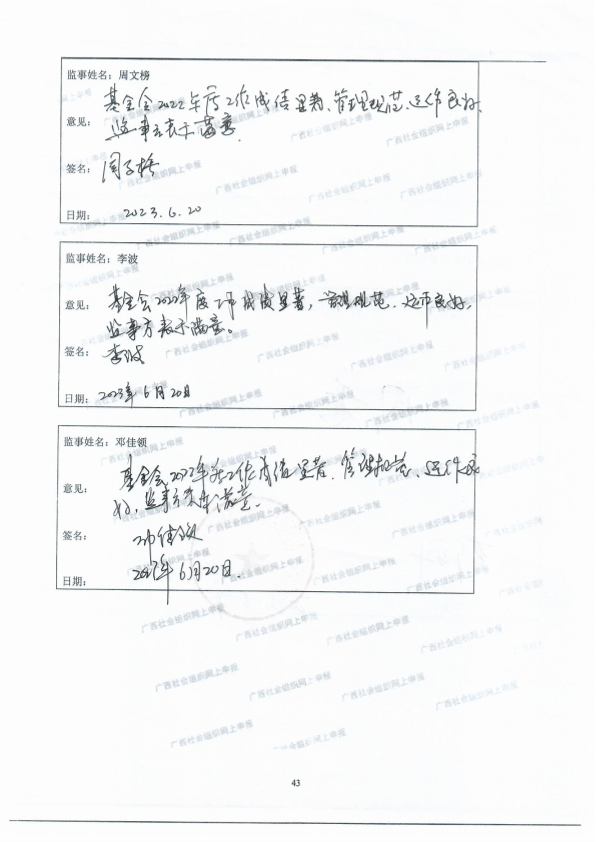 监事姓名：周文榜
基金会2022年度工作成绩显著、管理规范、运作良好、
意见：
监事方表示满意
签名：
日期： 2023.6.20
监事姓名：李波
意见： 基金会2022年度工作成绩显著，管理规范、运作良好，
监事方表示满意。
签名： 李波
日期： 2023年6月20日
监事姓名：邓佳领
基金会2022年度工作成绩显著、管理规范、运作良
意见： 好，监事方表示满意。
签名： 邓佳领
日期： 2023年6月20日
广西社会组织网上申报
43